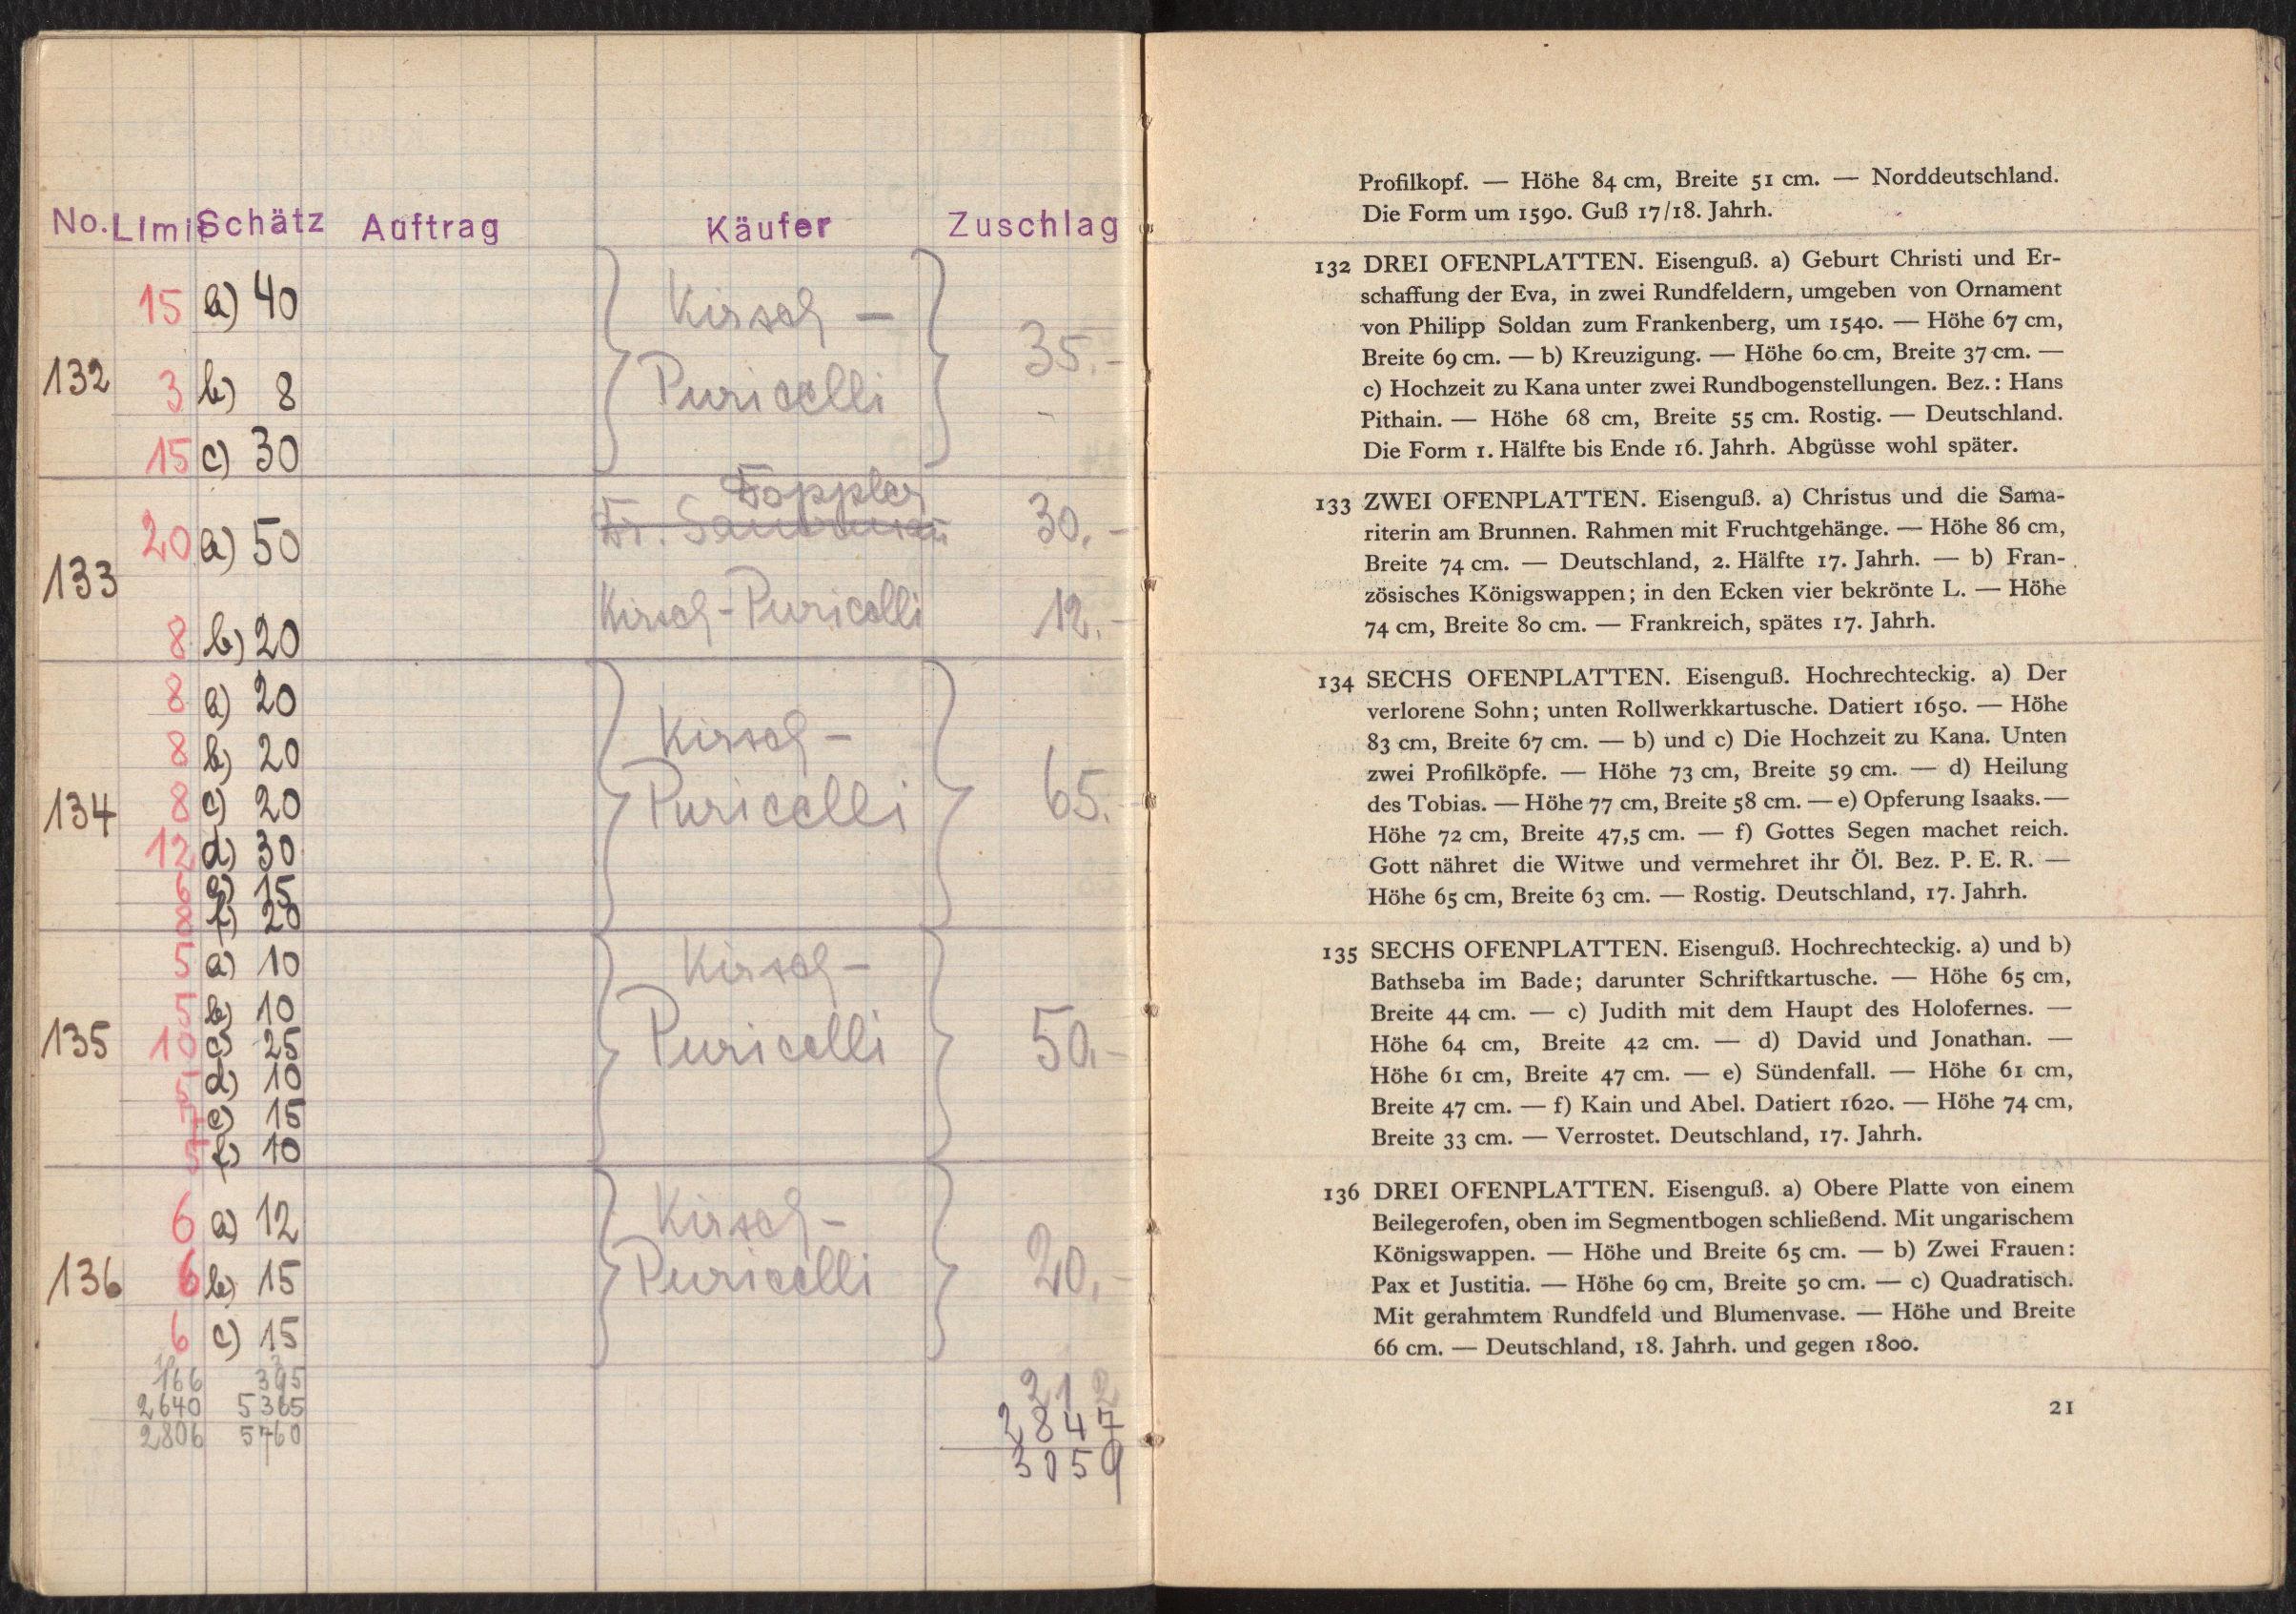 No. Limit Schätz Auftrag Käufer Zuschlag
15 a) 40 Kirsch –
132 3 b) 8 Puricelli 35.-
15 c) 30
Doppler
20 a) 50 Dr. 30.-
133
8 b) 20 Kirsch-Puricelli 12.-
8 a) 20
8 b) 20 Kirsch-
134 8 c) 20 Puricelli 65.-
12 d) 30
6 e) 15
8 f) 20
5 a) 10 Kirsch-
5 b) 10
135 10 c) 25 Puricelli 50.-
5 d) 10
7 e) 15
5 f) 10
6 a) 12 Kirsch-
136 6 b) 15 Puricelli 20.-
6 c) 15
166 395 212
2640 5365 2847
2806 5760 3059
Profilkopf. — Höhe 84 cm, Breite 51 cm. — Norddeutschland.
Die Form um 1590. Guß 17/18. Jahrh.
132 DREI OFENPLATTEN. Eisenguß. a) Geburt Christi und Er-
schaffung der Eva, in zwei Rundfeldern, umgeben von Ornament
von Philipp Soldan zum Frankenberg, um 1540. — Höhe 67 cm,
Breite 69 cm. — b) Kreuzigung. — Höhe 60 cm, Breite 37 cm. —
c) Hochzeit zu Kana unter zwei Rundbogenstellungen. Bez.: Hans
Pithain. — Höhe 68 cm, Breite 55 cm. Rostig. — Deutschland.
Die Form 1. Hälfte bis Ende 16. Jahrh. Abgüsse wohl später.
133 ZWEI OFENPLATTEN. Eisenguß. a) Christus und die Sama-
riterin am Brunnen. Rahmen mit Fruchtgehänge. — Höhe 86 cm,
Breite 74 cm. — Deutschland, 2. Hälfte 17. Jahrh. — b) Fran-
zösisches Königswappen; in den Ecken vier bekrönte L. — Höhe
74 cm, Breite 80 cm. — Frankreich, spätes 17. Jahrh.
134 SECHS OFENPLATTEN. Eisenguß. Hochrechteckig. a) Der
verlorene Sohn; unten Rollwerkkartusche. Datiert 1650. — Höhe
83 cm, Breite 67 cm. — b) und c) Die Hochzeit zu Kana. Unten
zwei Profilköpfe. — Höhe 73 cm, Breite 59 cm. — d) Heilung
des Tobias. — Höhe 77 cm, Breite 58 cm. — e) Opferung Isaaks. —
Höhe 72 cm, Breite 47,5 cm. — f) Gottes Segen machet reich.
Gott nähret die Witwe und vermehret ihr Öl. Bez. P. E. R. —
Höhe 65 cm, Breite 63 cm. — Rostig. Deutschland, 17. Jahrh.
135 SECHS OFENPLATTEN. Eisenguß. Hochrechteckig. a) und b)
Bathseba im Bade; darunter Schriftkartusche. — Höhe 65 cm,
Breite 44 cm. — c) Judith mit dem Haupt des Holofernes. —
Höhe 64 cm, Breite 42 cm. — d) David und Jonathan. —
Höhe 61 cm, Breite 47 cm. — e) Sündenfall. — Höhe 61 cm,
Breite 47 cm. — f) Kain und Abel. Datiert 1620. — Höhe 74 cm,
Breite 33 cm. — Verrostet. Deutschland, 17. Jahrh.
136 DREI OFENPLATTEN. Eisenguß. a) Obere Platte von einem
Beilegerofen, oben im Segmentbogen schließend. Mit ungarischem
Königswappen. — Höhe und Breite 65 cm. — b) Zwei Frauen:
Pax et Justitia. — Höhe 69 cm, Breite 50 cm. — c) Quadratisch.
Mit gerahmtem Rundfeld und Blumenvase. — Höhe und Breite
66 cm. — Deutschland, 18. Jahrh. und gegen 1800.
21